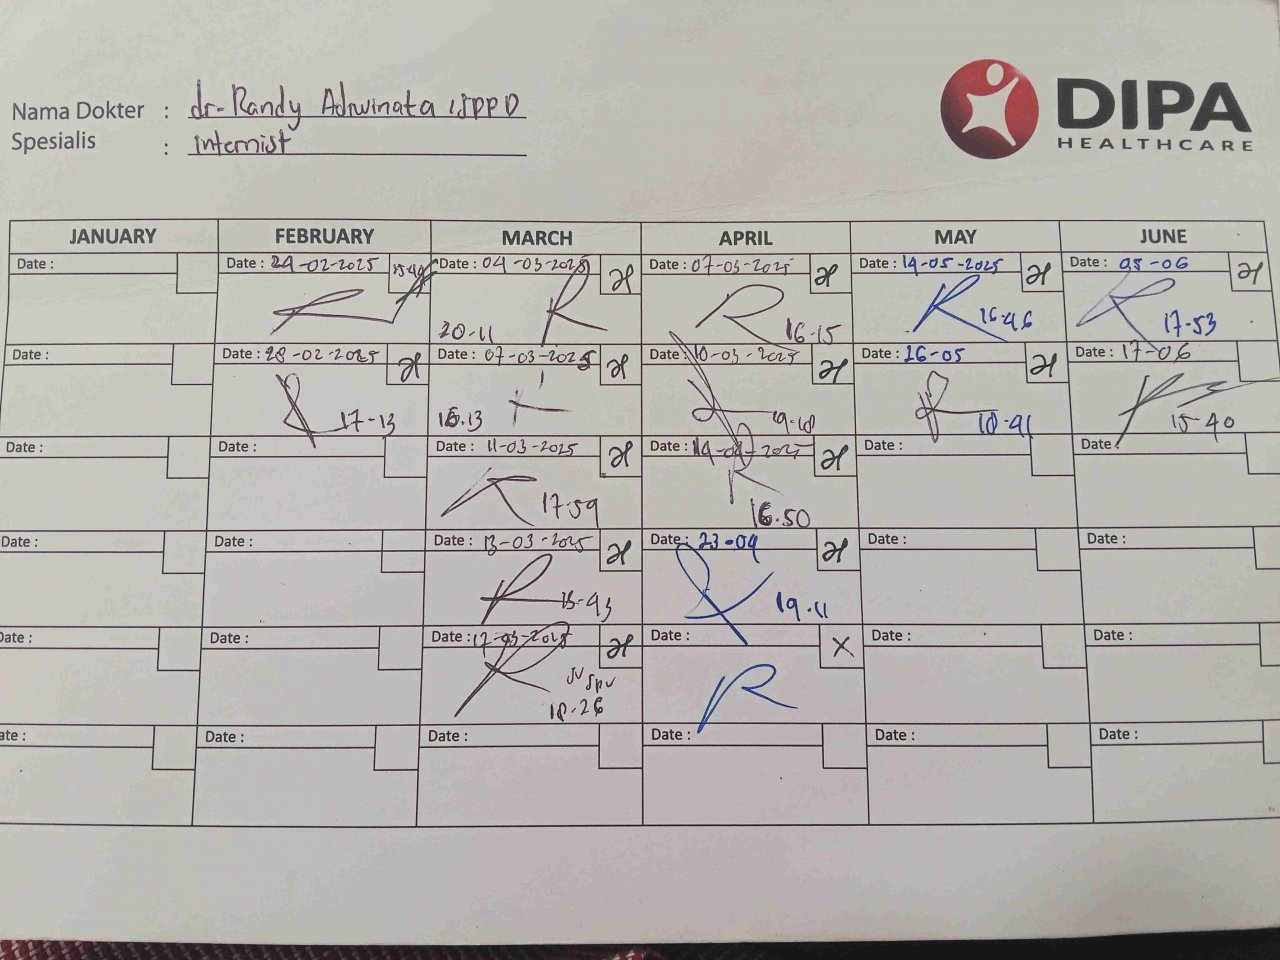 DIPA
HEALTHCARE
Nama Dokter : dr. Randy Adiwinata, SPPD
Spesialis : internist
JANUARY FEBRUARY MARCH APRIL MAY JUNE
Date : Date : 24-02-2025 Date : 04-03-2025 Date : 07-03-2025 Date : 14-05-2025 Date : 05-06
20-11 16-15 16-46 17-53
Date : Date : 28-02-2025 Date : 07-03-2025 Date : 10-03-2025 Date : 26-05 Date : 17-06
17-13 16.13 19-18 18-41 15-40
Date : Date : Date : 11-03-2025 Date : 14-04-2025 Date : Date :
17-59 16.50
Date : Date : Date : 13-03-2025 Date : 23-04 Date : Date :
19.11
Date : Date : Date : 17-03-2025 Date : X Date : Date :
18-26
Date : Date : Date : Date : Date : Date :